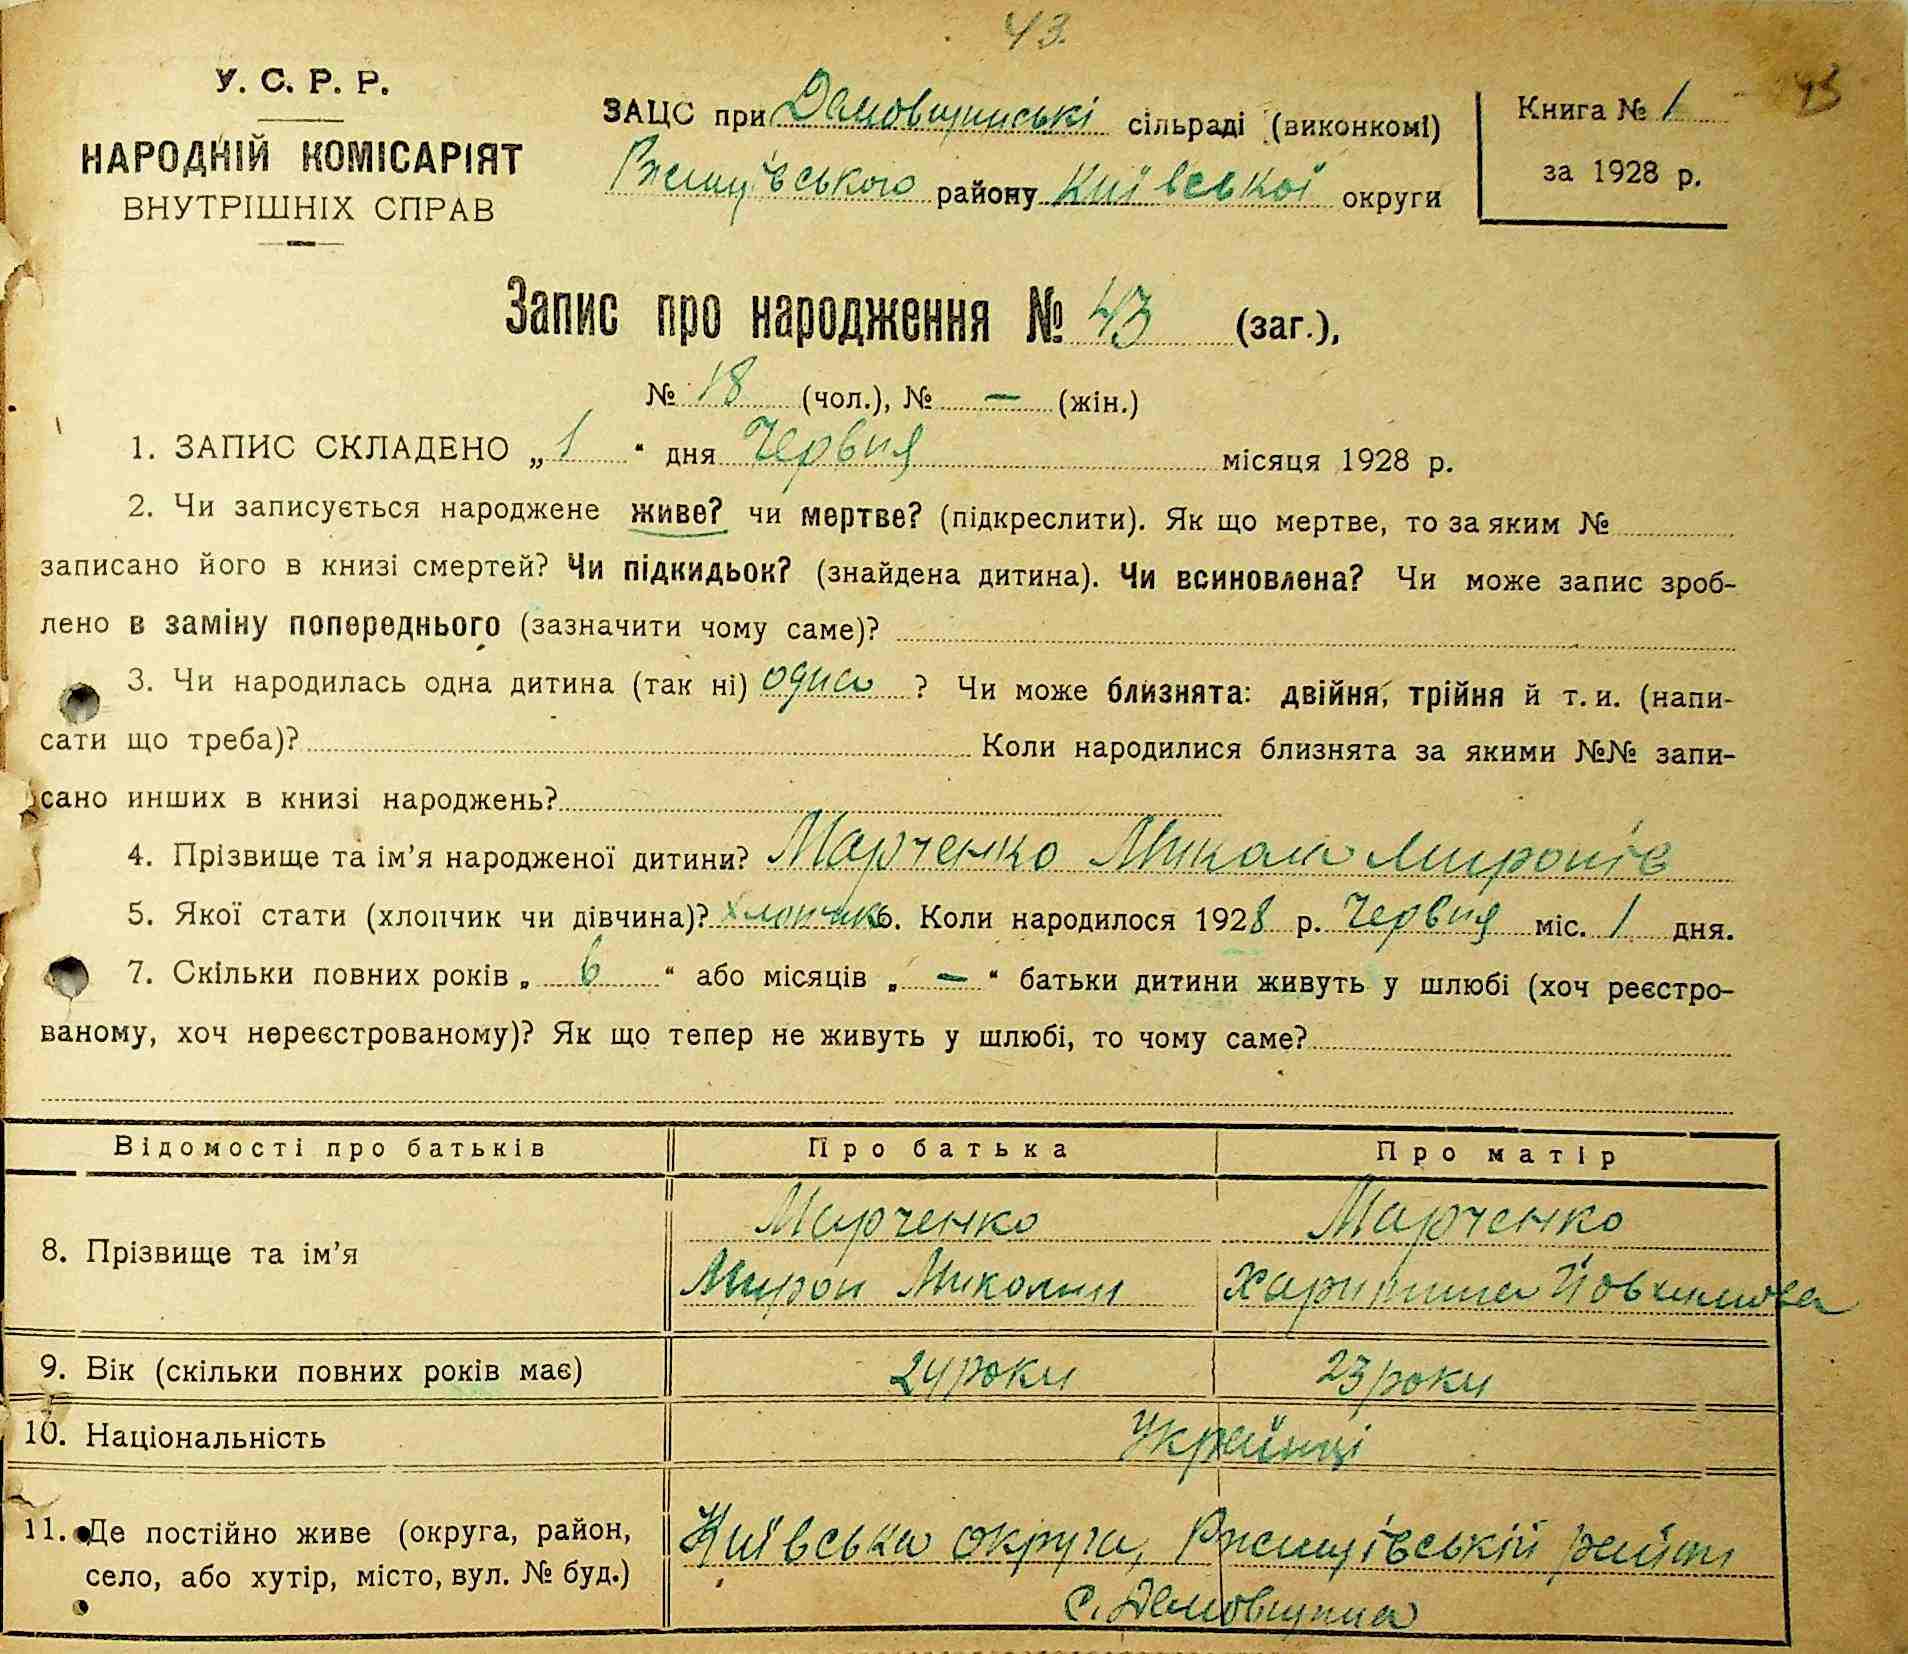 43.
43
У. С. Р. Р.
НАРОДНІЙ КОМІСАРІЯТ
ВНУТРІШНІХ СПРАВ
ЗАЦС при Демовщинські сільраді (виконкомі)
Ржищівського району Київської округи
Книга № 1
за 1928 р.
Запис про народження № 43 (заг.),
№ 18 (чол.), № — (жін.)
1. ЗАПИС СКЛАДЕНО „ 1 “ дня Червня місяця 1928 р.
2. Чи записується народжене живе? чи мертве? (підкреслити). Як що мертве, то за яким №
записано його в книзі смертей? Чи підкидьок? (знайдена дитина). Чи всиновлена? Чи може запис зроб-
лено в заміну попереднього (зазначити чому саме)?
3. Чи народилась одна дитина (так ні) одно ? Чи може близнята: двійня, трійня й т. и. (напи-
сати що треба)? Коли народилися близнята за якими №№ запи-
сано инших в книзі народжень?
4. Прізвище та ім’я народженої дитини? Марченко Микола Миронів
5. Якої стати (хлопчик чи дівчина)? хлопчик 6. Коли народилося 1928 р. Червня міс. 1 дня.
7. Скільки повних років „ 6 “ або місяців „ — “ батьки дитини живуть у шлюбі (хоч реєстро-
ваному, хоч нереєстрованому)? Як що тепер не живуть у шлюбі, то чому саме?
Відомості про батьків Про батька Про матір
8. Прізвище та ім’я
Марченко Марченко
Мирон Миколин Харитина Йовхимова
9. Вік (скільки повних років має) 24 роки 23 роки
10. Національність Українці
11. Де постійно живе (округа, район,
село, або хутір, місто, вул. № буд.)
Київська округа, Ржищівській район
с. Демовщина